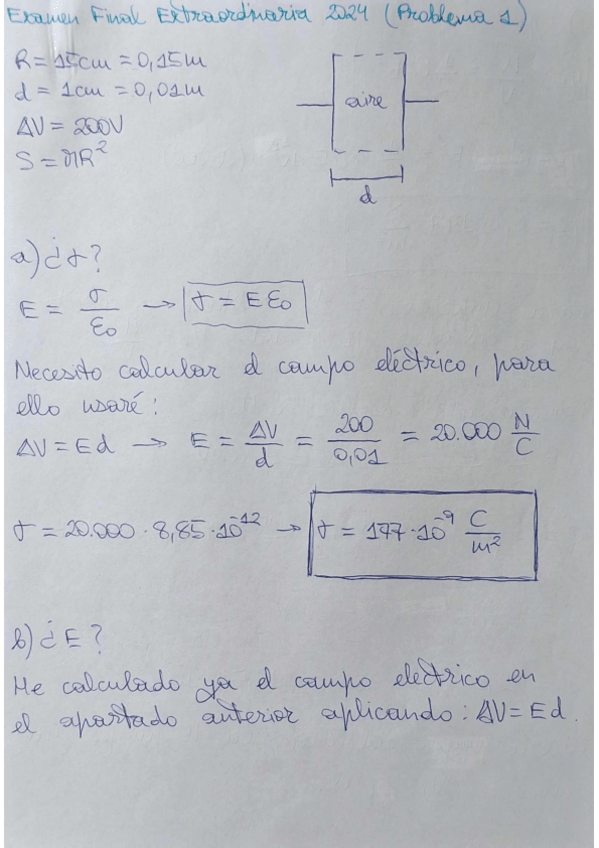 Examen Final Extraordinaria 2024 (Problema 1)
R = 15cm = 0,15m
d = 1cm = 0,01m
ΔV = 200V
S = πR²
aire
d
a) ¿σ?
E = σ/ε₀ → σ = E ε₀
Necesito calcular el campo eléctrico, para
ello usaré:
ΔV = Ed → E = ΔV/d = 200/0,01 = 20.000 N/C
σ = 20.000 · 8,85 · 10⁻¹² → σ = 177 · 10⁻⁹ C/m²
b) ¿E?
He calculado ya el campo eléctrico en
el apartado anterior aplicando: ΔV = Ed.